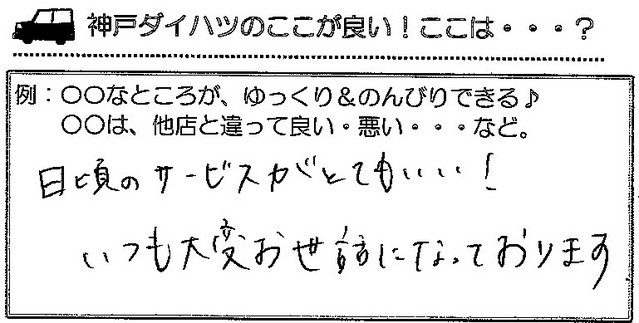 神戸ダイハツのここが良い！ここは・・・？
例：〇〇なところが、ゆっくり＆のんびりできる♪
〇〇は、他店と違って良い・悪い・・・など。
日頃のサービスがとてもいい！
いつも大変お世話になっております